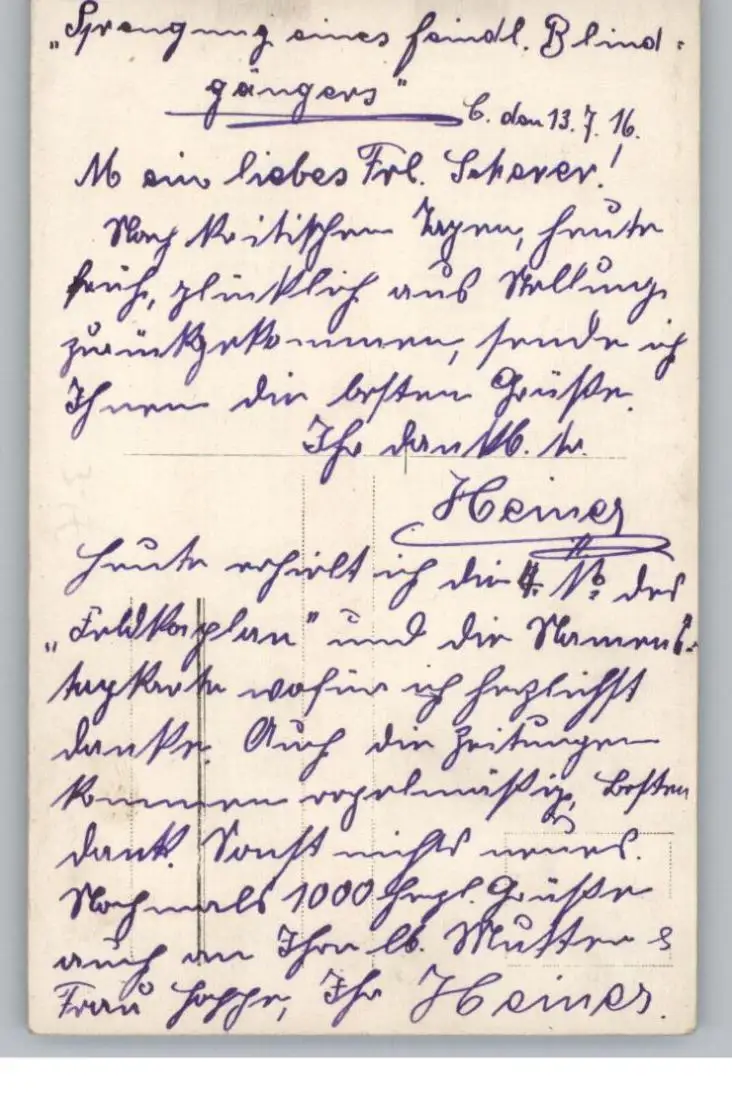 „Sprengung eines feindl. Blind-
gängers“
C. den 13.7.16.
Mein liebes Frl. Scherer!
Nach kritischen Tagen, heute
früh, glücklich aus Stellung
zurückgekommen, sende ich
Ihnen die besten Grüße.
Ihr dankb. tr.
Heiner
Heute erhielt ich die 4. No. des
„Feldkaplan“ und die Namens-
tagkarte wofür ich herzlichst
danke. Auch die Zeitungen
kommen regelmäßig, besten
dank. Sonst nichts neues.
Nochmals 1000 herzl. Grüße
auch an Ihre lb. Mutter &
Frau Hoppe, Ihr Heiner.